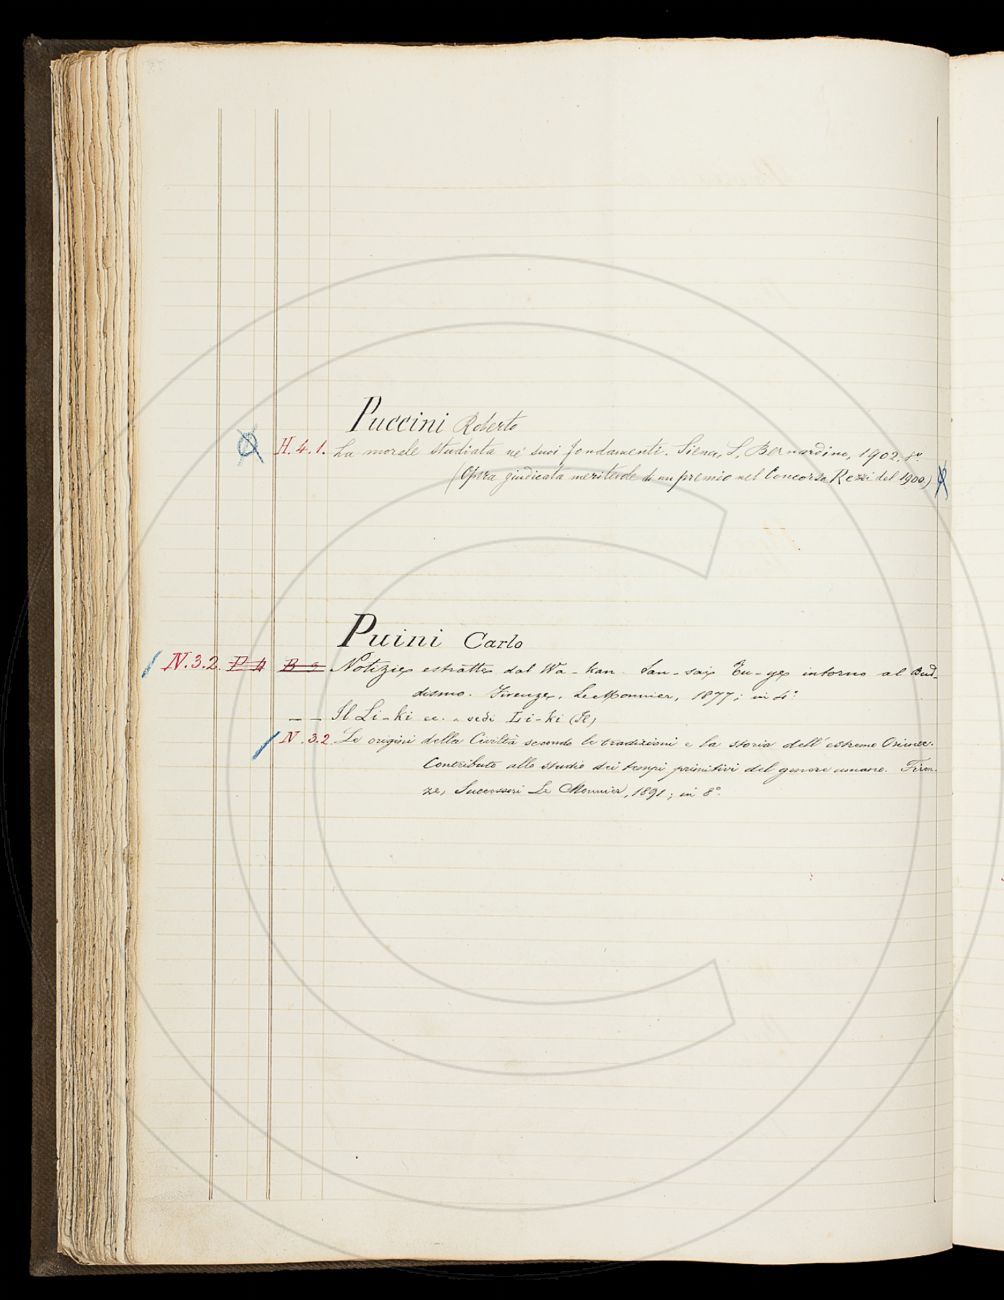 Puccini Roberto
H. 4. 1. La morale studiata ne' suoi fondamenti. Siena, S. Bernardino, 1902. 8°
(Opera giudicata meritevole di un premio nel Concorso Rezzi del 1900)
Puini Carlo
N. 3. 2. Notizie estratte dal Wa-kan San-sai Tu-ye intorno al Bud-
dismo. Firenze, Le Monnier, 1877; in 4°
— — Il Li-ki ec. - vedi Li-ki (Il)
N. 3. 2 Le origini della Civiltà secondo la tradizione e la storia dell'estremo Oriente.
Contributo allo studio dei tempi primitivi del genere umano. Firen-
ze, Successori Le Monnier, 1891; in 8°.